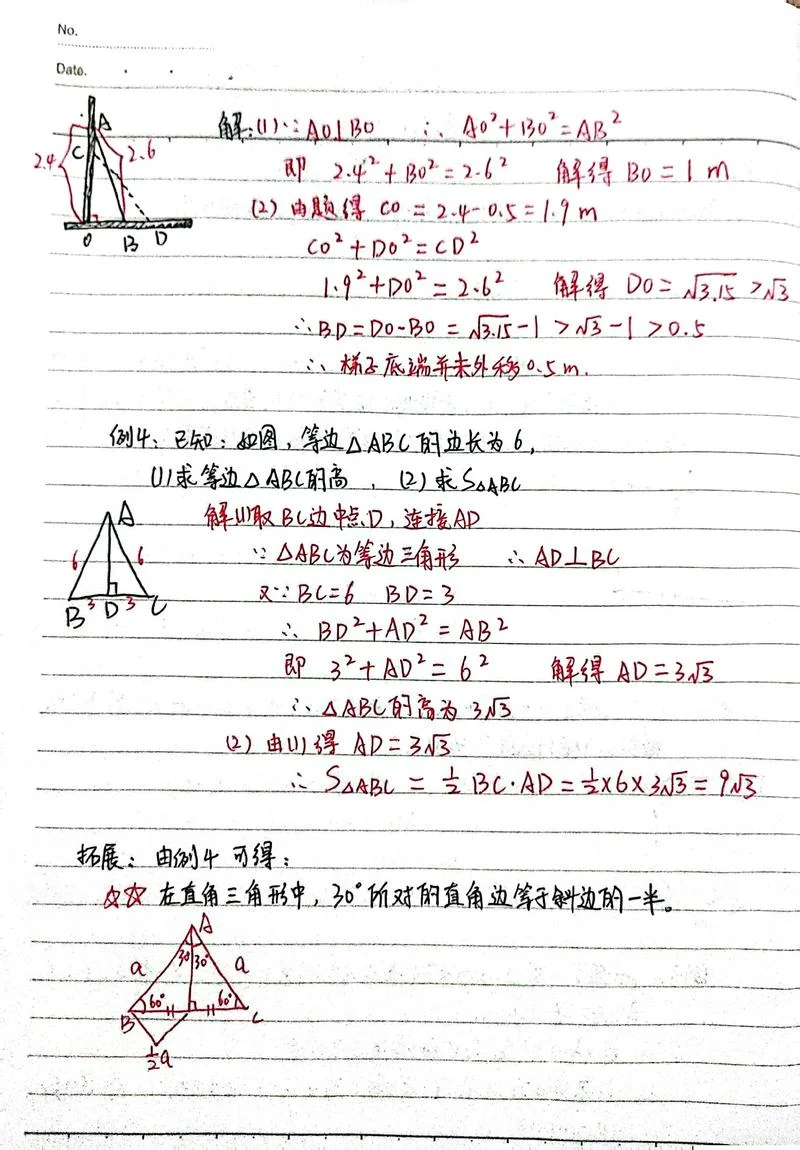 No.
Date.
A
C
2.4
2.6
O B D
解:(1)∵AO⊥BO ∴ AO²+BO²=AB²
即 2.4²+BO²=2.6² 解得 BO=1 m
(2) 由题得 CO=2.4-0.5=1.9 m
CO²+DO²=CD²
1.9²+DO²=2.6² 解得 DO=√3.15>√3
∴BD=DO-BO=√3.15-1>√3-1>0.5
∴梯子底端并未外移0.5m.
例4:已知:如图,等边△ABC的边长为6,
(1)求等边△ABC的高,(2)求S△ABC
A
6 6
B 3 D 3 C
解(1)取BC边中点D,连接AD
∵△ABC为等边三角形 ∴AD⊥BC
又∵BC=6 BD=3
∴ BD²+AD²=AB²
即 3²+AD²=6² 解得 AD=3√3
∴△ABC的高为3√3
(2)由(1)得 AD=3√3
∴ S△ABC=½BC·AD=½×6×3√3=9√3
拓展:由例4可得:
☆☆ 在直角三角形中,30°所对的直角边等于斜边的一半。
A
30° 30°
a a
60° 60°
B C
½a